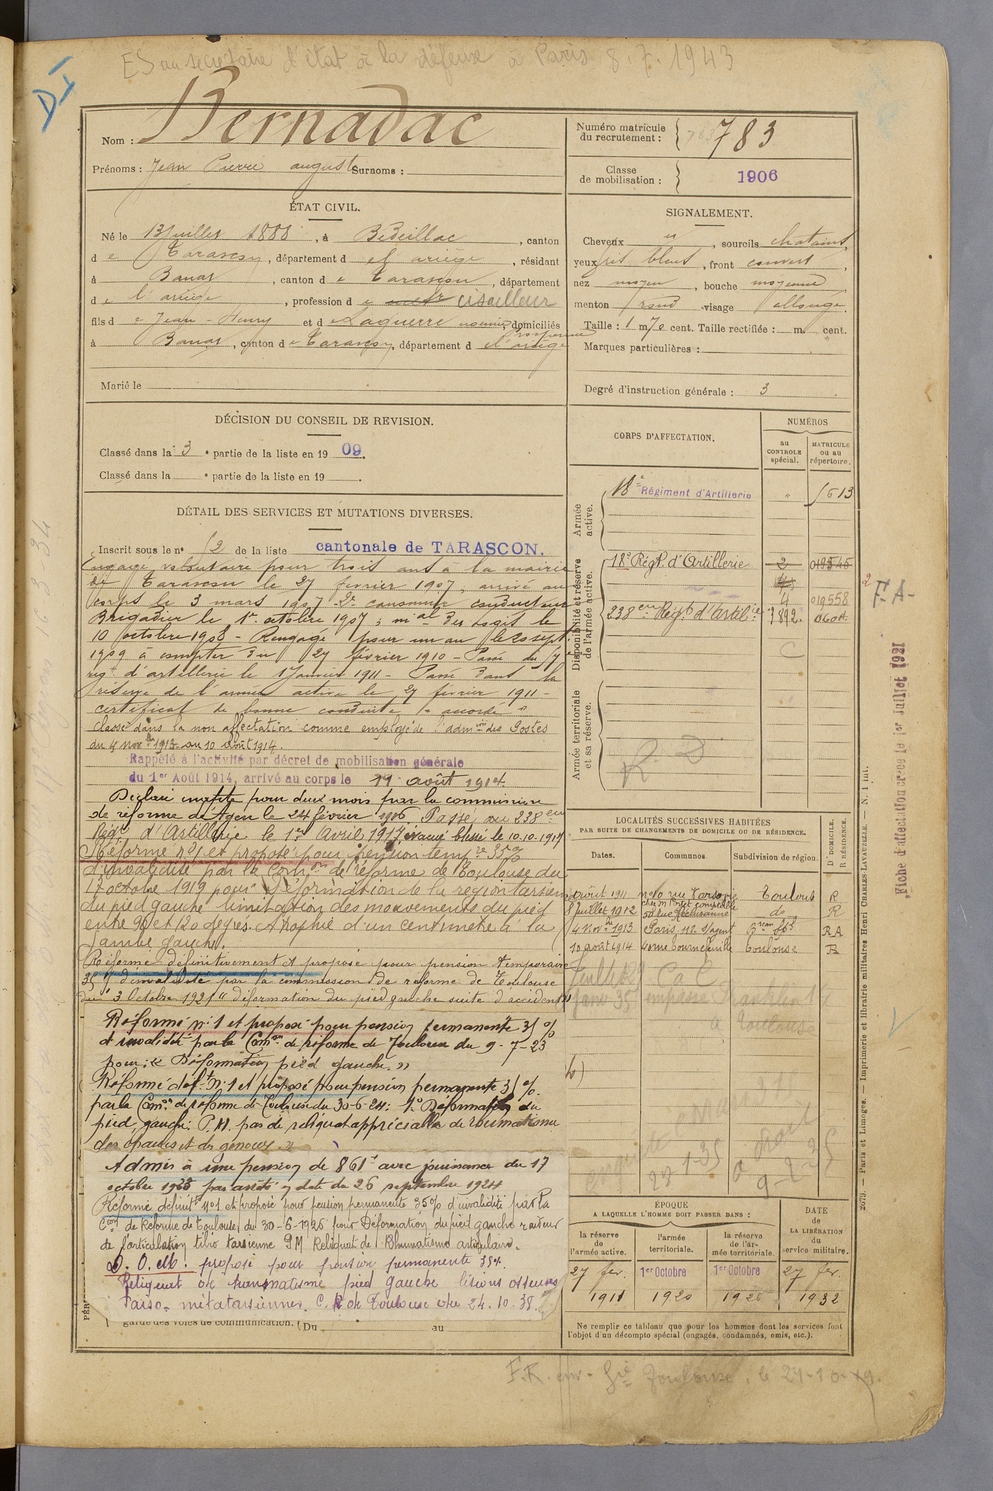 ES au secrétaire d'état à la défense à Paris 8.7.1943
DI
Nom : Bernadac
Prénoms : Jean Pierre auguste Surnoms :
Numéro matricule du recrutement : 783
Classe de mobilisation : 1906
ÉTAT CIVIL.
Né le 13 Juillet 1888, à Bédeillac, canton
d e Tarascon, département d el ariège, résidant
à Banat, canton d e Tarascon, département
d e l'ariège, profession d e ciseilleur
fils d e Jean-Henry et d e Laguerre domiciliés
à Banat, canton d e Tarascon, département d el'ariège
Marié le
SIGNALEMENT.
Cheveux , sourcils chatains,
yeux gris bleus, front couvert,
nez moyen, bouche moyenne
menton rond visage allongé.
Taille : 1 m 70 cent. Taille rectifiée : m. cent.
Marques particulières :
Degré d'instruction générale : 3
DÉCISION DU CONSEIL DE REVISION.
Classé dans la 3e partie de la liste en 1909.
Classé dans la e partie de la liste en 19 .
DÉTAIL DES SERVICES ET MUTATIONS DIVERSES.
Inscrit sous le n° 12 de la liste cantonale de TARASCON.
Engagé volontaire pour trois ans à la mairie
de Tarascon le 27 février 1907, arrivé au
corps le 3 mars 1907 2e canonnier conducteur
Brigadier le 1er octobre 1907; mal des logis le
10 octobre 1908 - Rengagé pour un an le 20 sept.
1909 à compter du 27 février 1910 - Passé du
rég. d'artillerie le 1 Janvier 1911 - Passé dans la
réserve de l'armée active le 27 février 1911 -
certificat de bonne conduite "accordé"
Classé dans la non affectation comme employé de l'admon des Postes
du 4 novbre 1913 au 10 août 1914.
Rappelé à l'activité par décret de mobilisation générale
du 1er Août 1914, arrivé au corps le 11 août 1914.
Déclaré inapte pour deux mois par la commission
de réforme d'Agen le 24 février 1916 Passé au 238eme
Régt d'Artillerie le 1er Avril 1917 évacué blessé le 10.10.1917
Réformé n°1 et proposé pour pension tempre 35%
d'invalidité par la Comon de réforme de Toulouse du
17 octobre 1919 pour Déformation de la région tarsienne
du pied gauche limitation des mouvements du pied
entre 90 et 120 degrés. Atrophie d'un centimètre à la
jambe gauche.
Réformé définitivement et proposé pour pension temporaire
35% d'invalidité par la commission de réforme de Toulouse
du 3 Octobre 1921 "déformation du pied gauche suite d'accident"
Réformé n°1 et proposé pour pension permanente 35%
d'invalidité par la Comon de réforme de Toulouse du 9-7-23
pour: "Déformation pied gauche."
Réformé déft n°1 et proposé pour pension permanente 35%.
par la Comon de réforme de Toulouse du 30-6-24: 1° Déformation du
pied gauche: P.M. pas de reliquat appréciable de rhumatisme
des épaules et des genoux."
Admis à une pension de 861f avec jouissance du 17
octobre 1923 par arrêté en date du 26 septembre 1924
Réformé définitt n°1 et proposé pour pension permanente 35% d'invalidité par la
Comon de Réforme de Toulouse du 30-6-1926 pour Déformation du pied gauche raideur
de l'articulation tibio tarsienne PM. Reliquat de Rhumatisme articulaire.
D.O.M. proposé pour pension permanente 35%.
Reliquat de traumatisme pied gauche lésions osseuses
Tarso-métatarsiennes. C.R. de Toulouse du 24.10.38.
garde des voies de communication. (Du au
CORPS D'AFFECTATION.
NUMÉROS
au CONTROLE spécial.
MATRICULE ou au répertoire.
Armée active.
18e Régiment d'Artillerie " 1613
Disponibilité et réserve de l'armée active.
18e Régt d'Artillerie 2
4 019558
238eme Régt d'Artilie
C
Armée territoriale et sa réserve.
R.D
F.A-
Fiche d'affectation créée le 1er Juillet 1921
LOCALITÉS SUCCESSIVES HABITÉES
PAR SUITE DE CHANGEMENTS DE DOMICILE OU DE RÉSIDENCE.
Dates. Communes. Subdivision de région. D DOMICILE. R RÉSIDENCE.
août 1911 Toulouse R
8 juillet 1912 de R
14 Novbre 1913 Paris, RA
10 août 1914 Toulouse R
Janv 35 impasse
à Toulouse
ÉPOQUE
A LAQUELLE L'HOMME DOIT PASSER DANS :
la réserve de l'armée active.
l'armée territoriale.
la réserve de l'armée territoriale.
DATE de LA LIBÉRATION du service militaire.
27 fév. 1911
1er Octobre 1920
1er Octobre 1926
27 fév. 1932
Ne remplir ce tableau que pour les hommes dont les services font
l'objet d'un décompte spécial (engagés, condamnés, omis, etc.).
2079. — Paris et Limoges. — Imprimerie et librairie militaires Henri CHARLES-LAVAUZELLE. — N. 1 int.